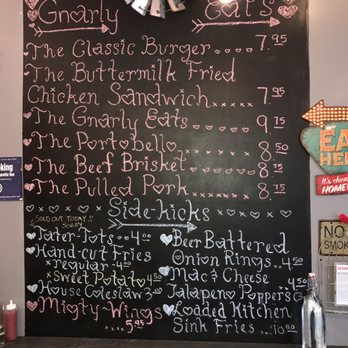 Gnarly Eats
The Classic Burger 7.95
The Buttermilk Fried
Chicken Sandwich 7.95
The Gnarly Eats 9.75
The Portobello 8.50
The Beef Brisket 8.75
The Pulled Pork 8.75
Side-Kicks
SOLD OUT TODAY!!
SORRY
Tater-Tots 4.00
Hand-cut Fries
*regular 4.00
*Sweet Potato 4.50
House Coleslaw 3.00
Migty-Wings
5.95
Beer Battered
Onion Rings 4.50
Mac & Cheese
Jalapeno Poppers
Loaded Kitchen
Sink Fries 10.50
EAT
HERE
It's
HOME
NO
SMOK